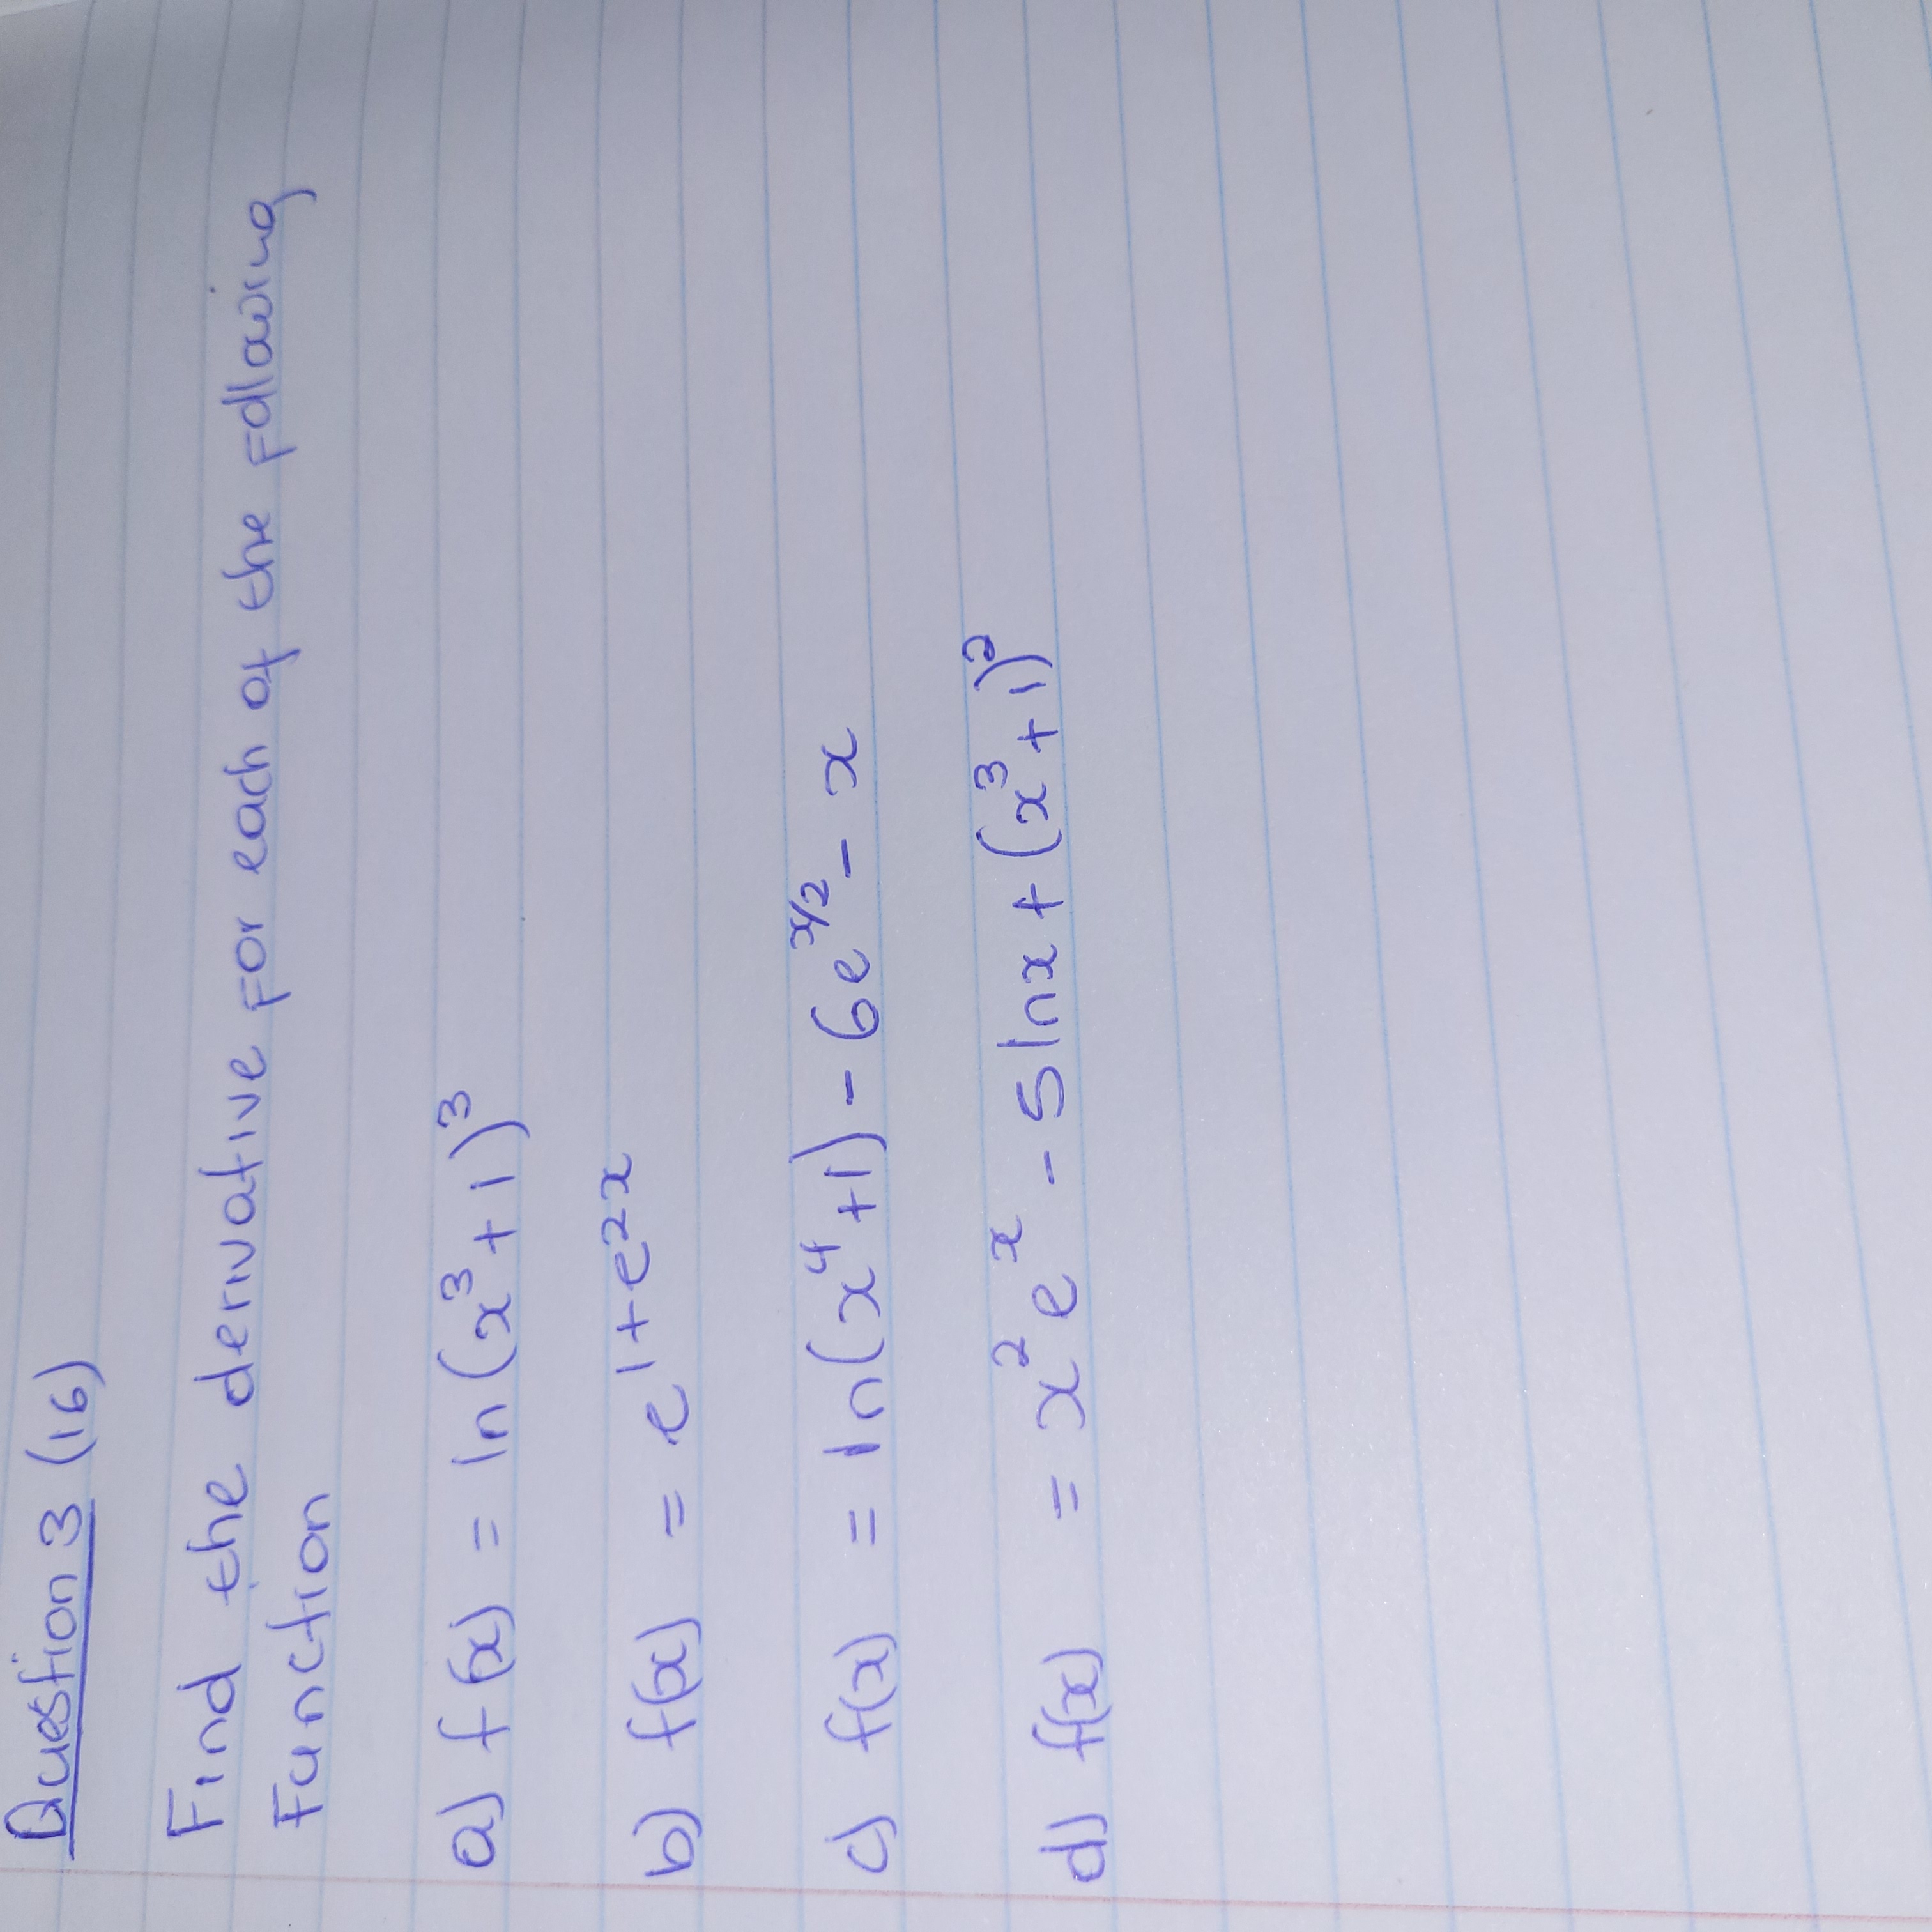 Question 3 (16)
Find the derivative For each of the Following
Function
a) f(x) = ln(x³+1)³
b) f(x) = e^1+e^2x
c) f(x) = ln(x⁴+1) - 6e^x/2 - x
d) f(x) = x²e^x - 5lnx + (x³+1)²